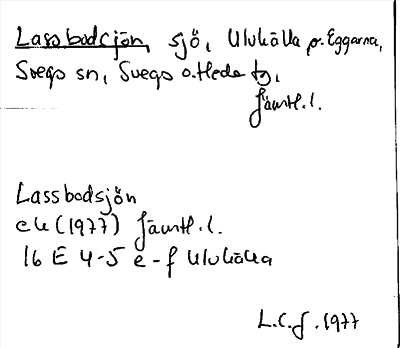 Lassbodsjön, sjö, Ulvkälla o. Eggarna,
Svegs sn, Svegs o. Hede tg,
Jämtl.l.
Lassbodsjön
ek (1977) Jämtl.l.
16 E 4-5 e-f Ulvkälla
L.C.J. 1977